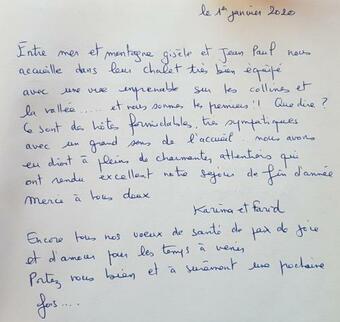 le 1er janvier 2020
Entre mer et montagne gisèle et Jean Paul nous
accueille dans leur chalet très bien équipé
avec une vue imprenable sur les collines et
la vallée..... et nous sommes les premiers!! Que dire ?
Ce sont des hôtes formidables, très sympathiques
avec un grand sens de l'accueil.. nous avons
eu droit à pleins de charmantes attentions qui
ont rendu excellent notre séjour de fin d'année
Merci à vous deux
Karima et Farid
Encore tous nos voeux de santé de paix de joie
et d'amour pour les temps à venir
Portez vous bien et à sûrement une prochaine
fois....